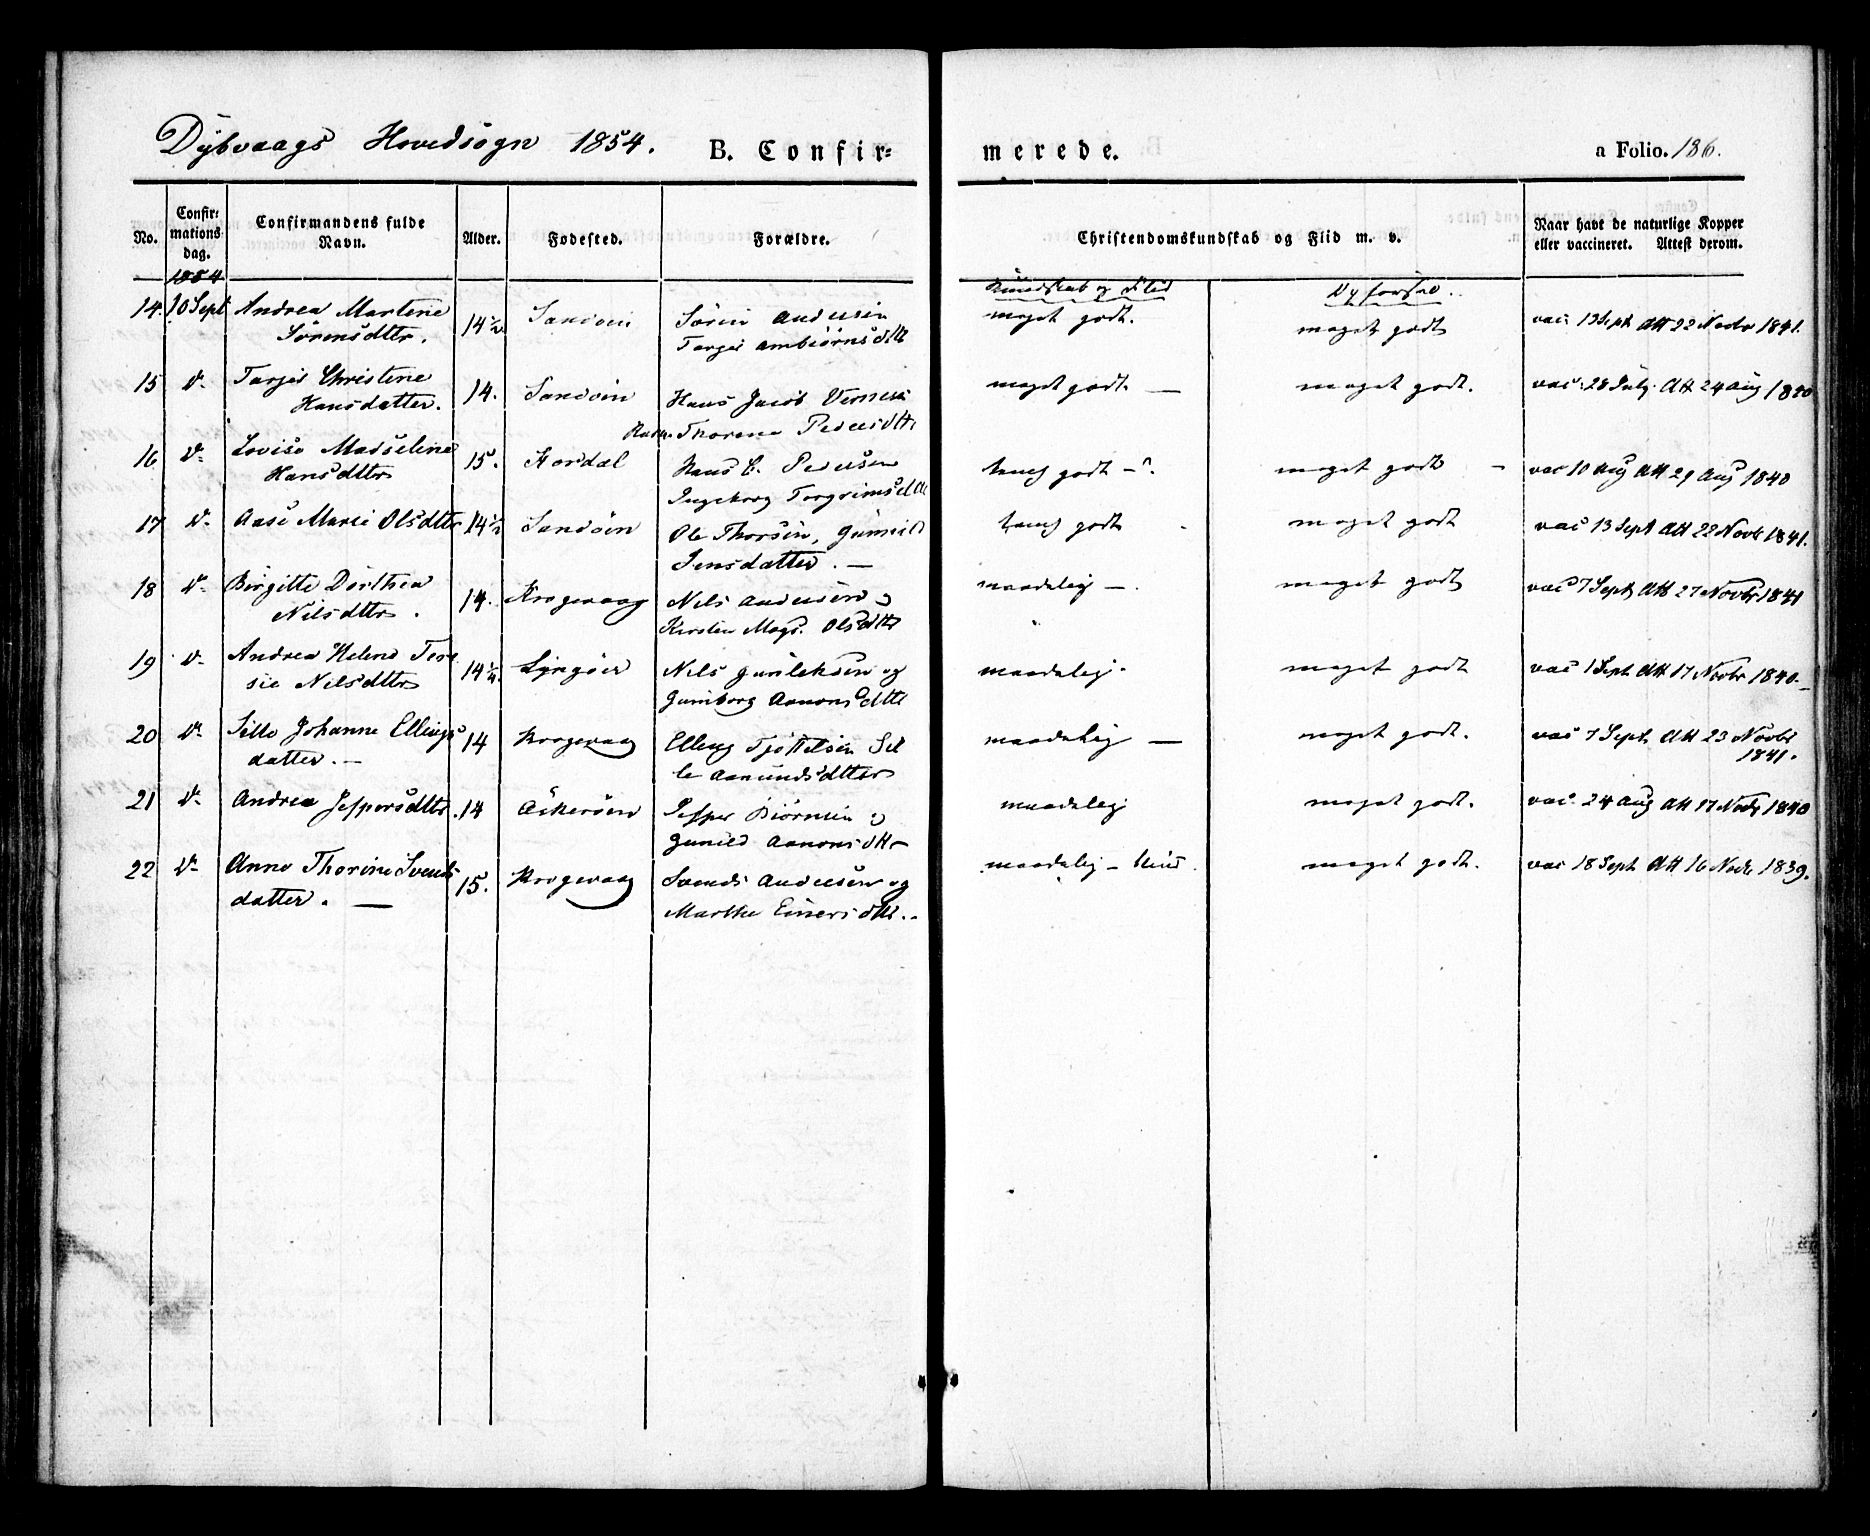 Dybvaags Hovedsogn 1854. B. Confir= merede. a Folio. 186.
No. Confir= mations dag. Confirmandens fulde Navn. Alder. Fødested. Forældre. Christendomskundskab og Flid m. v. Naar havt de naturlige Kopper eller vaccineret. Attest derom.
1854 Kundskab og Flid
14. 10 Sept Andrea Martine 14½ Sandøen Søren Andersen meget godt. meget godt vac: 13 Sept Att 22 Novbr 1841.
Sörensdtter. Torger Ambiörnsdtt
15 D. Torger Christine 14. Sandöen Hans Jacob meget godt — meget godt. vac: 28 July Att 24 Aug 1840
Hansdatter. Thorene Pedersdtt
16 D. Lovise Madseline 15. Hans C. Pedersen temg godt —. meget godt vac 10 Aug Att 29 Aug 1840
Hansdtter Ingeborg Torgrimsdtt
17 D. Aase Marie Olsdtter 14½ Sandöen Ole Thorsen, Gunnild temg godt meget godt vac 13 Sept Att 22 Novbr 1841.
Jensdatter. —
18 D. Birgitte Dorthea 14. Krogevaag Nils Andersen og maadelig —. meget godt vac 7 Sept Att 27 Novbr 1841
Nilsdtter. Kirsten Marg. Olsdtter
19 D. Andrea Helene Tere 14¼ Lyngöer Nils Gunleksen og maadelig. meget godt vac 1 Sept Att 17 Novbr 1840. —
sie Nilsdtter Gunborg Aanonsdtte
20 D. Sille Johanne Ellings 14 Krogevaag Elling Tjöttelsen Sil maadelig — meget godt. vac 7 Sept. Att 23 Novbr
datter. — le Aanundsdtter 1841.
21 D. Andrea Jespersdtter. 14 Askeröen Jesper Biörnsen og maadelig meget godt. vac. 24 Aug Att 17 Novbr 1840
Gunild Aanonsdtt
22 D. Anne Thorine Svends 15. Krogevaag Svends Andersen og maadelig — Flid meget godt. vac 18 Sept Att 16 Novbr 1839.
datter. — Marthe Einersdtt. -